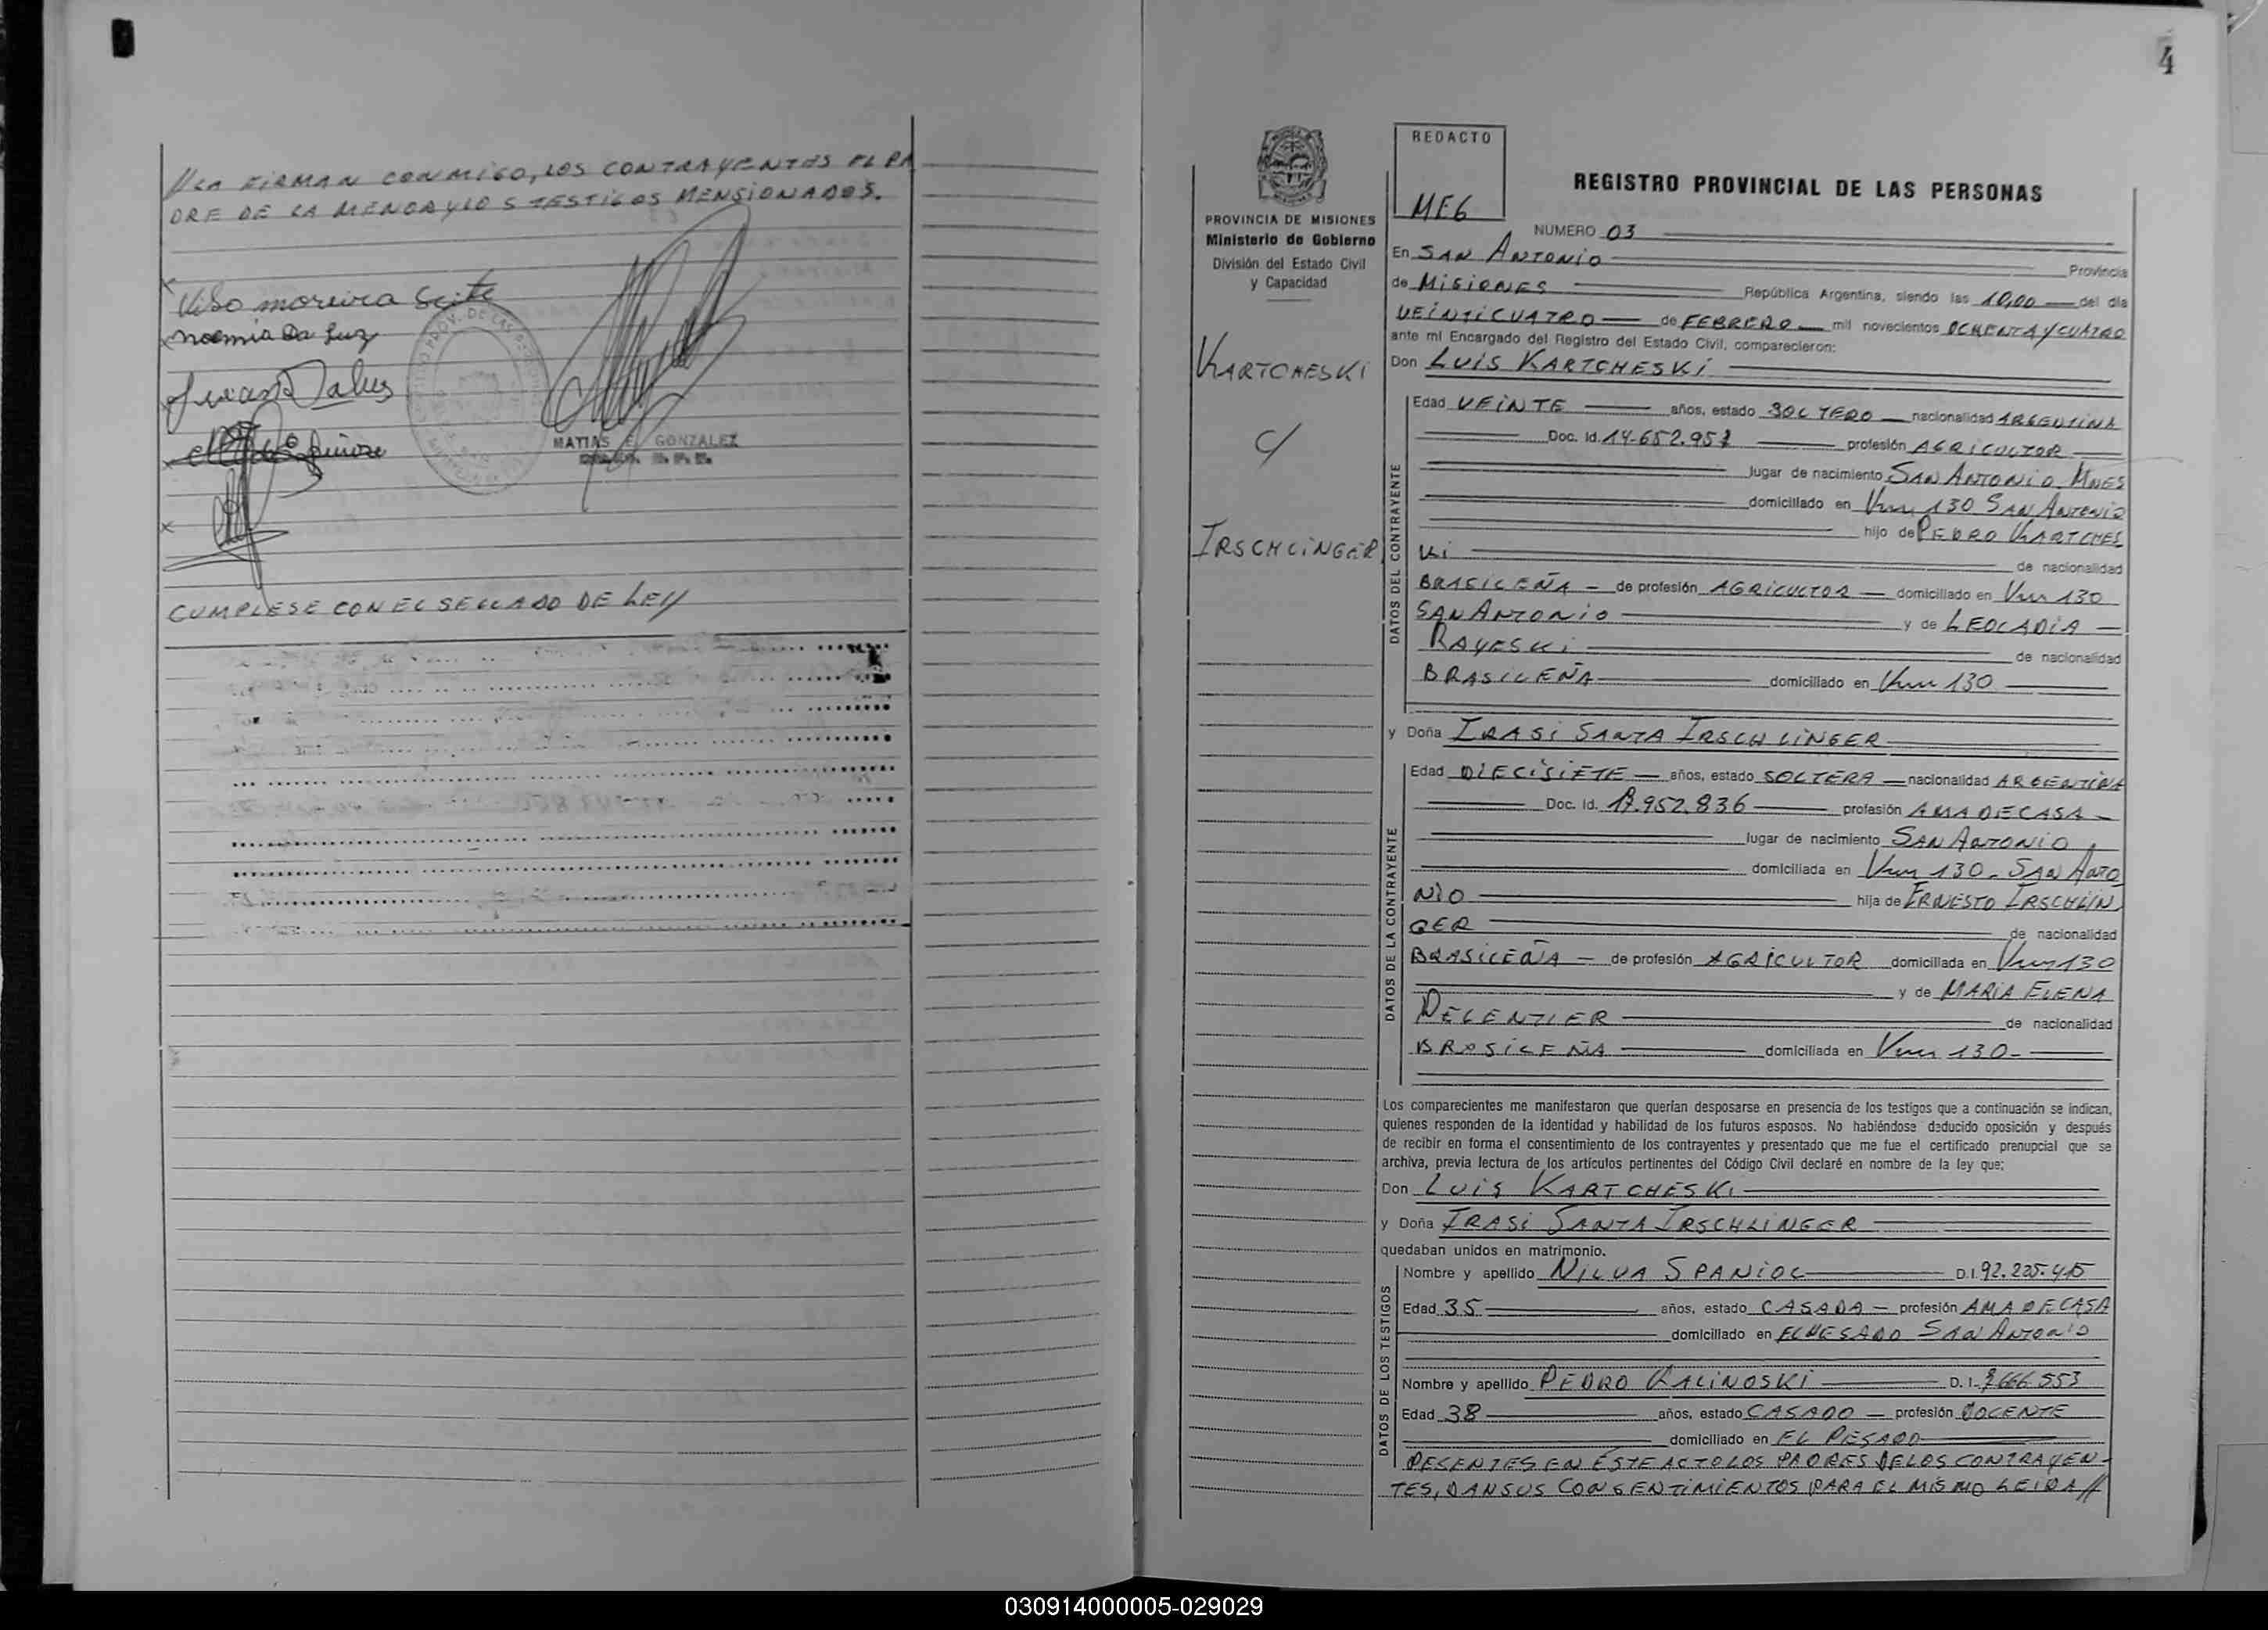 //LA FIRMAN CONMIGO, LOS CONTRAYENTES EL PA
DRE DE LA MENOR Y LOS TESTIGOS MENSIONADOS.
moreira
Noemia Da Luz
MATIAS E. GONZALEZ
CUMPLESE CON EL SELLADO DE LEY
4
PROVINCIA DE MISIONES
Ministerio de Gobierno
División del Estado Civil
y Capacidad
KARTCHESKI
c/
IRSCHLINGER
REDACTO
MEG
REGISTRO PROVINCIAL DE LAS PERSONAS
NUMERO 03
En SAN ANTONIO Provincia
de MISIONES República Argentina, siendo las 10,00 del día
VEINTICUATRO de FEBRERO mil novecientos OCHENTA Y CUATRO
ante mí Encargado del Registro del Estado Civil, comparecieron:
Don LUIS KARTCHESKI
DATOS DEL CONTRAYENTE
Edad VEINTE años, estado SOLTERO nacionalidad ARGENTINA
Doc. Id. 14.652.957 profesión AGRICULTOR
lugar de nacimiento SAN ANTONIO MNES
domiciliado en Km 130 SAN ANTONIO
hijo de PEDRO KARTCHES
KI de nacionalidad
BRASILEÑA - de profesión AGRICULTOR domiciliado en Km 130
SAN ANTONIO y de LEOCADIA
RAYESKI de nacionalidad
BRASILEÑA domiciliado en Km 130
y Doña IRASI SANTA IRSCHLINGER
DATOS DE LA CONTRAYENTE
Edad DIECISIETE años, estado SOLTERA nacionalidad ARGENTINA
Doc. Id. .952.836 profesión AMA DE CASA
lugar de nacimiento SAN ANTONIO
domiciliada en Km 130 - SAN ANTO
NIO hija de ERNESTO IRSCHLIN
GER de nacionalidad
BRASILEÑA - de profesión AGRICULTOR domiciliada en Km 130
y de MARIA ELENA
DELENTIER de nacionalidad
BRASILEÑA domiciliada en Km 130-
Los comparecientes me manifestaron que querían desposarse en presencia de los testigos que a continuación se indican,
quienes responden de la identidad y habilidad de los futuros esposos. No habiéndose deducido oposición y después
de recibir en forma el consentimiento de los contrayentes y presentado que me fue el certificado prenupcial que se
archiva, previa lectura de los artículos pertinentes del Código Civil declaré en nombre de la ley que;
Don LUIS KARTCHESKI
y Doña IRASI SANTA IRSCHLINGER
quedaban unidos en matrimonio.
DATOS DE LOS TESTIGOS
Nombre y apellido NILVA SPANIOL D.I. 92.225.415
Edad 35 años, estado CASADA profesión AMA DE CASA
domiciliado en EL PESADO SAN ANTONIO
Nombre y apellido PEDRO KALINOSKI D. I. 7666553
Edad 38 años, estado CASADO profesión DOCENTE
domiciliado en EL PESADO
PESENTES EN ESTE ACTO LOS PADRES DE LOS CONTRAYEN-
TES, DAN SUS CONSENTIMIENTOS PARA EL MISMO LEIDA//
030914000005-029029